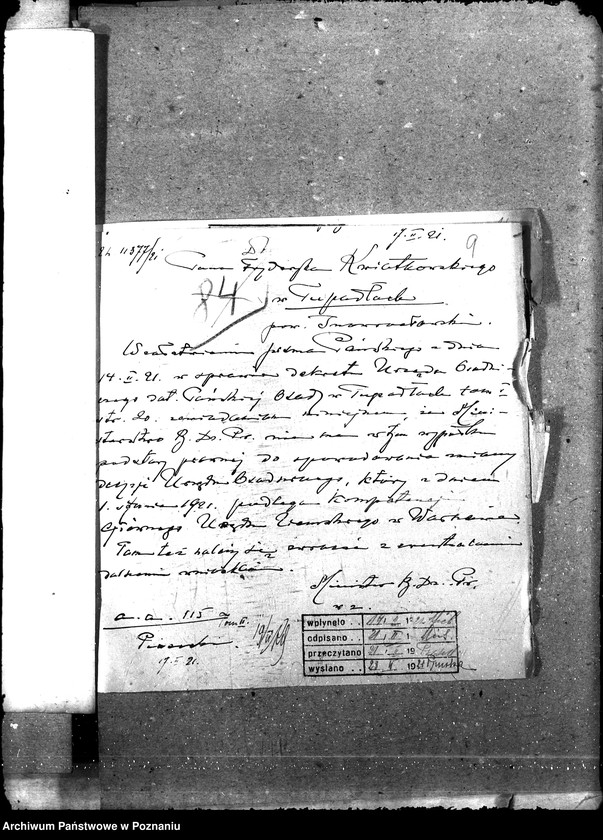 17.II.21.
9
11377/21
Do
Pana Fryderyka Kwiatkowskiego
84
w Tupadłach
pow. Inowrocławski.
W załatwieniu pisma Pańskiego z dnia
14.II.21. w sprawie dekretu Urzędu Osadni-
czego dot. Pańskiej Osady w Tupadłach tom I
str. 20. zawiadamiam niniejszem, że Mini-
sterstwo B. Dz. Pr. nie ma w tym wypadku
podstawy prawnej do spowodowania zmiany
decyzji Urzędu Osadniczego, który z dniem
1. stycznia 1921. podlega kompetencji
Głównego Urzędu Ziemskiego w Warszawie.
Tam też należy się zwrócić z ewentualnemi
dalszemi wnioskami.
Minister B. Dz. Pr.
w z.
a. a. 115
Tom II.
17.II.21.
wpłynęło
odpisano
przeczytano
wysłano
19
Archiwum Państwowe w Poznaniu